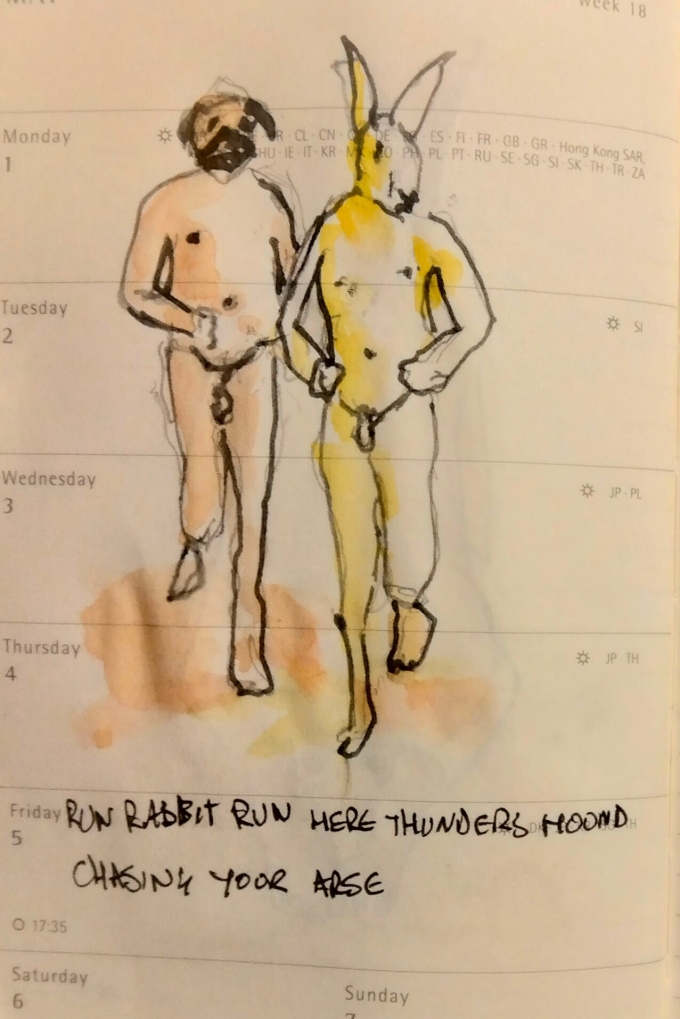 Week 18
Monday
1
CL · CN · DE · ES · FI · FR · GB · GR · Hong Kong SAR,
HU · IE · IT · KR · PH · PL · PT · RU · SE · SG · SI · SK · TH · TR · ZA
Tuesday
2
SI
Wednesday
3
JP · PL
Thursday
4
JP · TH
Friday
5
RUN RABBIT RUN HERE THUNDERS HOUND
CHASING YOUR ARSE
17:35
Saturday
6
Sunday
7